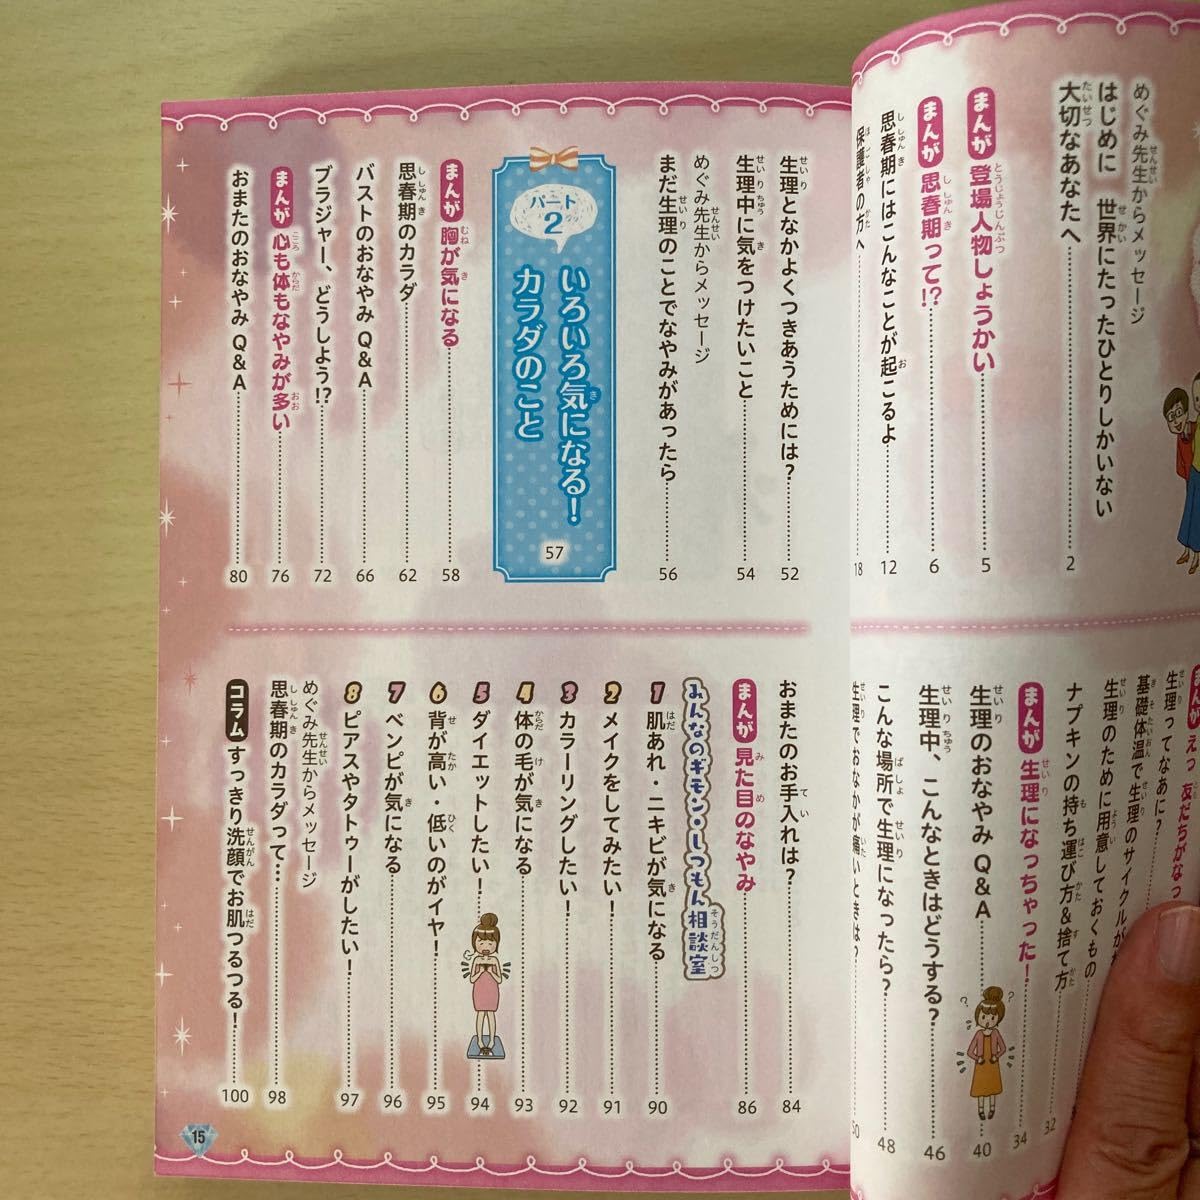 めぐみ先生からメッセージ
はじめに 世界にたったひとりしかいない
大切なあなたへ 2
まんが 登場人物しょうかい 5
まんが 思春期って!? 6
思春期にはこんなことが起こるよ 12
保護者の方へ 18
友だちがな
生理ってなあに?
基礎体温で生理のサイクルが
生理のために用意しておくもの
ナプキンの持ち運び方&捨て方 32
まんが 生理になっちゃった! 34
生理のおなやみ Q&A 40
生理中、こんなときはどうする? 46
こんな場所で生理になったら? 48
生理でおなかが痛いときは? 50
生理となかよくつきあうためには? 52
生理中に気をつけたいこと 54
めぐみ先生からメッセージ
まだ生理のことでなやみがあったら 56
パート2
いろいろ気になる!
カラダのこと
57
まんが 胸が気になる 58
思春期のカラダ 62
バストのおなやみ Q&A 66
ブラジャー、どうしよう!? 72
まんが 心も体もなやみが多い 76
おまたのおなやみ Q&A 80
おまたのお手入れは? 84
まんが 見た目のなやみ 86
みんなのギモン・しつもん相談室
1 肌あれ・ニキビが気になる 90
2 メイクをしてみたい! 91
3 カラーリングしたい! 92
4 体の毛が気になる 93
5 ダイエットしたい! 94
6 背が高い・低いのがイヤ! 95
7 ベンピが気になる 96
8 ピアスやタトゥーがしたい! 97
めぐみ先生からメッセージ
思春期のカラダって… 98
コラム すっきり洗顔でお肌つるつる! 100
15